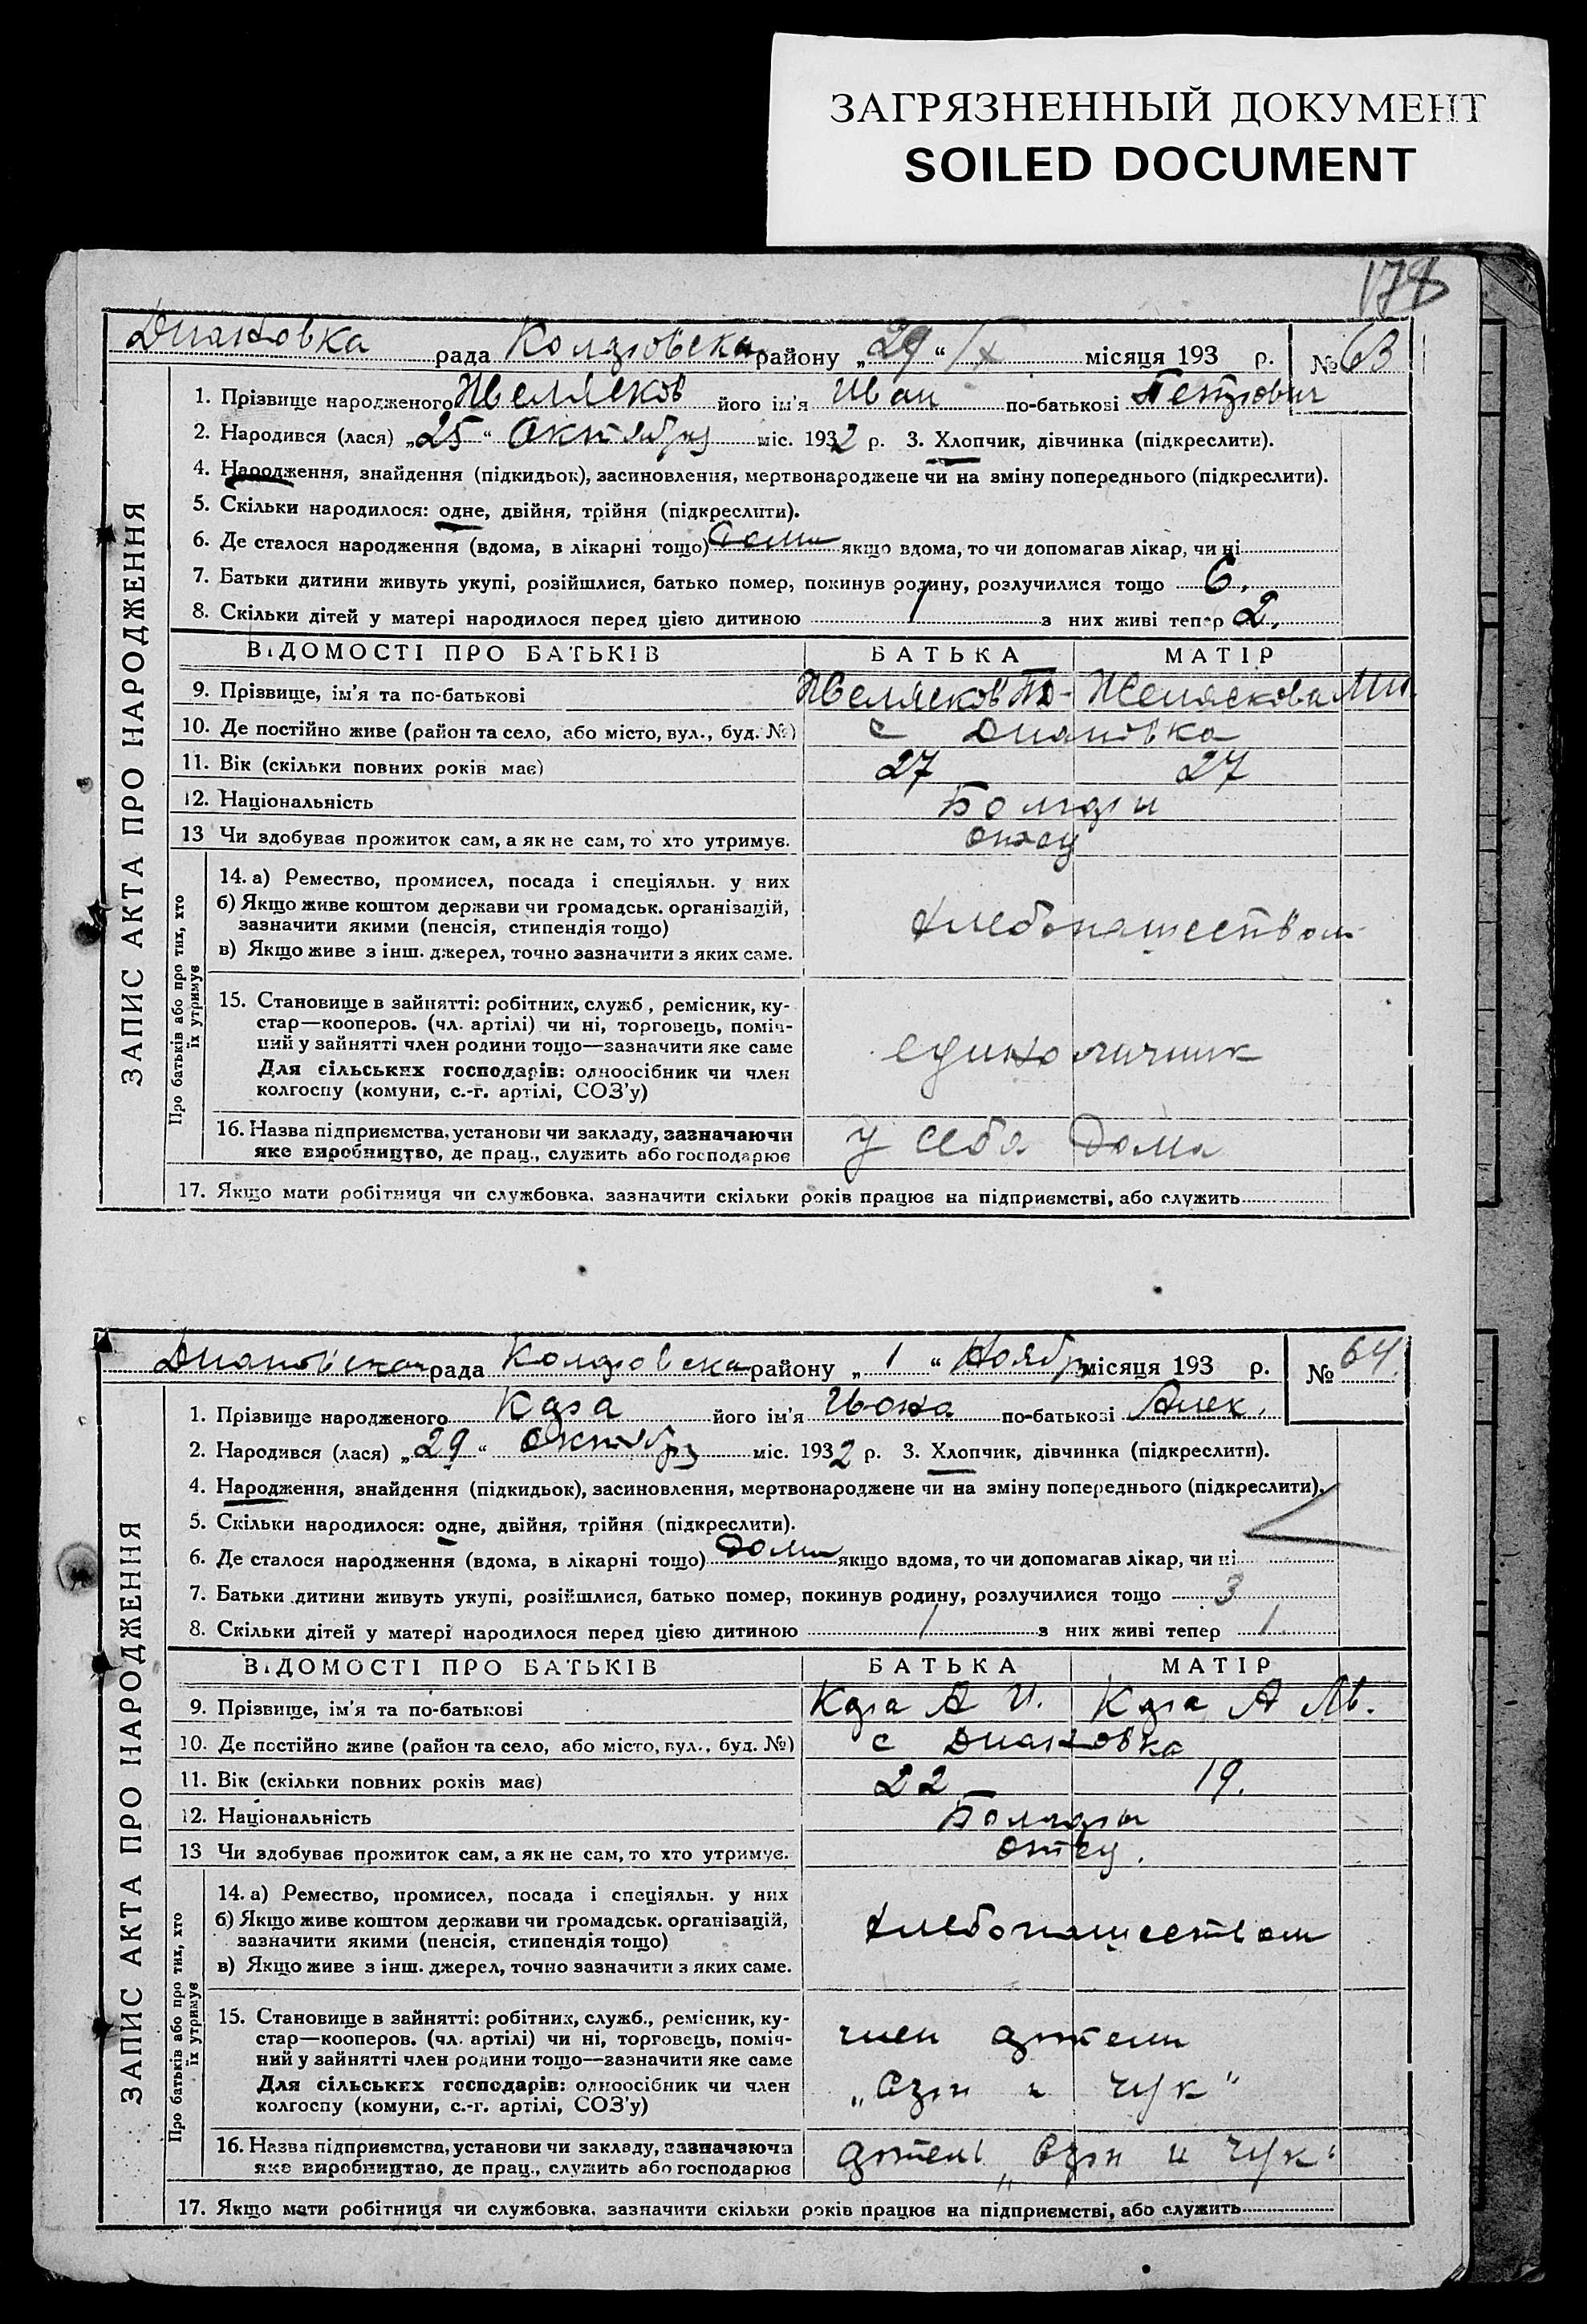 ЗАГРЯЗНЕННЫЙ ДОКУМЕНТ
SOILED DOCUMENT
178
Диановка рада Коларовска району „29“ IX місяця 193 р. № 63
ЗАПИС АКТА ПРО НАРОДЖЕННЯ
1. Прізвище народженого Желясков його ім'я Иван по-батькові Петрович
2. Народився (лася) „25“ Октября міс. 1932 р. 3. Хлопчик, дівчинка (підкреслити).
4. Народження, знайдення (підкидьок), засиновлення, мертвонароджене чи на зміну попереднього (підкреслити).
5. Скільки народилося: одне, двійня, трійня (підкреслити).
6. Де сталося народження (вдома, в лікарні тощо) дома якщо вдома, то чи допомагав лікар, чи ні
7. Батьки дитини живуть укупі, розійшлися, батько помер, покинув родину, розлучилися тощо 6.
8. Скільки дітей у матері народилося перед цією дитиною 1 з них живі тепер 2.
ВІДОМОСТІ ПРО БАТЬКІВ БАТЬКА МАТІР
9. Прізвище, ім'я та по-батькові Желясков Желяскова
10. Де постійно живе (район та село, або місто, вул., буд. №) с Диановка
11. Вік (скільки повних років має) 27 27
12. Національність Болгари
13 Чи здобуває прожиток сам, а як не сам, то хто утримує. отец
Про батьків або про тих, хто їх утримує
14. а) Ремество, промисел, посада і спеціяльн. у них
б) Якщо живе коштом держави чи громадськ. організацій,
зазначити якими (пенсія, стипендія тощо) хлебопашеством
в) Якщо живе з інш. джерел, точно зазначити з яких саме.
15. Становище в зайнятті: робітник, служб., ремісник, ку-
стар—кооперов. (чл. артілі) чи ні, торговець, поміч-
ний у зайнятті член родини тощо—зазначити яке саме единоличник
Для сільських господарів: одноосібник чи член
колгоспу (комуни, с.-г. артілі, СОЗ'у)
16. Назва підприємства, установи чи закладу, зазначаючи у себя дома
яке виробництво, де прац., служить або господарює
17. Якщо мати робітниця чи службовка, зазначити скільки років працює на підприємстві, або служить
Диановская рада Коларовска району „1“ Ноября місяця 193 р. № 64.
ЗАПИС АКТА ПРО НАРОДЖЕННЯ
1. Прізвище народженого Кара його ім'я Ивона по-батькові Алек.
2. Народився (лася) „29“ Октября міс. 1932 р. 3. Хлопчик, дівчинка (підкреслити).
4. Народження, знайдення (підкидьок), засиновлення, мертвонароджене чи на зміну попереднього (підкреслити).
5. Скільки народилося: одне, двійня, трійня (підкреслити).
6. Де сталося народження (вдома, в лікарні тощо) дома якщо вдома, то чи допомагав лікар, чи ні
7. Батьки дитини живуть укупі, розійшлися, батько помер, покинув родину, розлучилися тощо 3
8. Скільки дітей у матері народилося перед цією дитиною 1 з них живі тепер 1.
ВІДОМОСТІ ПРО БАТЬКІВ БАТЬКА МАТІР
9. Прізвище, ім'я та по-батькові Кара А И. Кара А
10. Де постійно живе (район та село, або місто, вул., буд. №) с Диановка
11. Вік (скільки повних років має) 22 19.
12. Національність Болгары
13 Чи здобуває прожиток сам, а як не сам, то хто утримує. отец.
Про батьків або про тих, хто їх утримує
14. а) Ремество, промисел, посада і спеціяльн. у них
б) Якщо живе коштом держави чи громадськ. організацій,
зазначити якими (пенсія, стипендія тощо) хлебопашеством
в) Якщо живе з інш. джерел, точно зазначити з яких саме.
15. Становище в зайнятті: робітник, служб., ремісник, ку-
стар—кооперов. (чл. артілі) чи ні, торговець, поміч- член артели
ний у зайнятті член родини тощо—зазначити яке саме
Для сільських господарів: одноосібник чи член „Сэрп и чук“
колгоспу (комуни, с.-г. артілі, СОЗ'у)
16. Назва підприємства, установи чи закладу, зазначаючи артель „Сэрп и чук“
яке виробництво, де прац., служить або господарює
17. Якщо мати робітниця чи службовка, зазначити скільки років працює на підприємстві, або служить